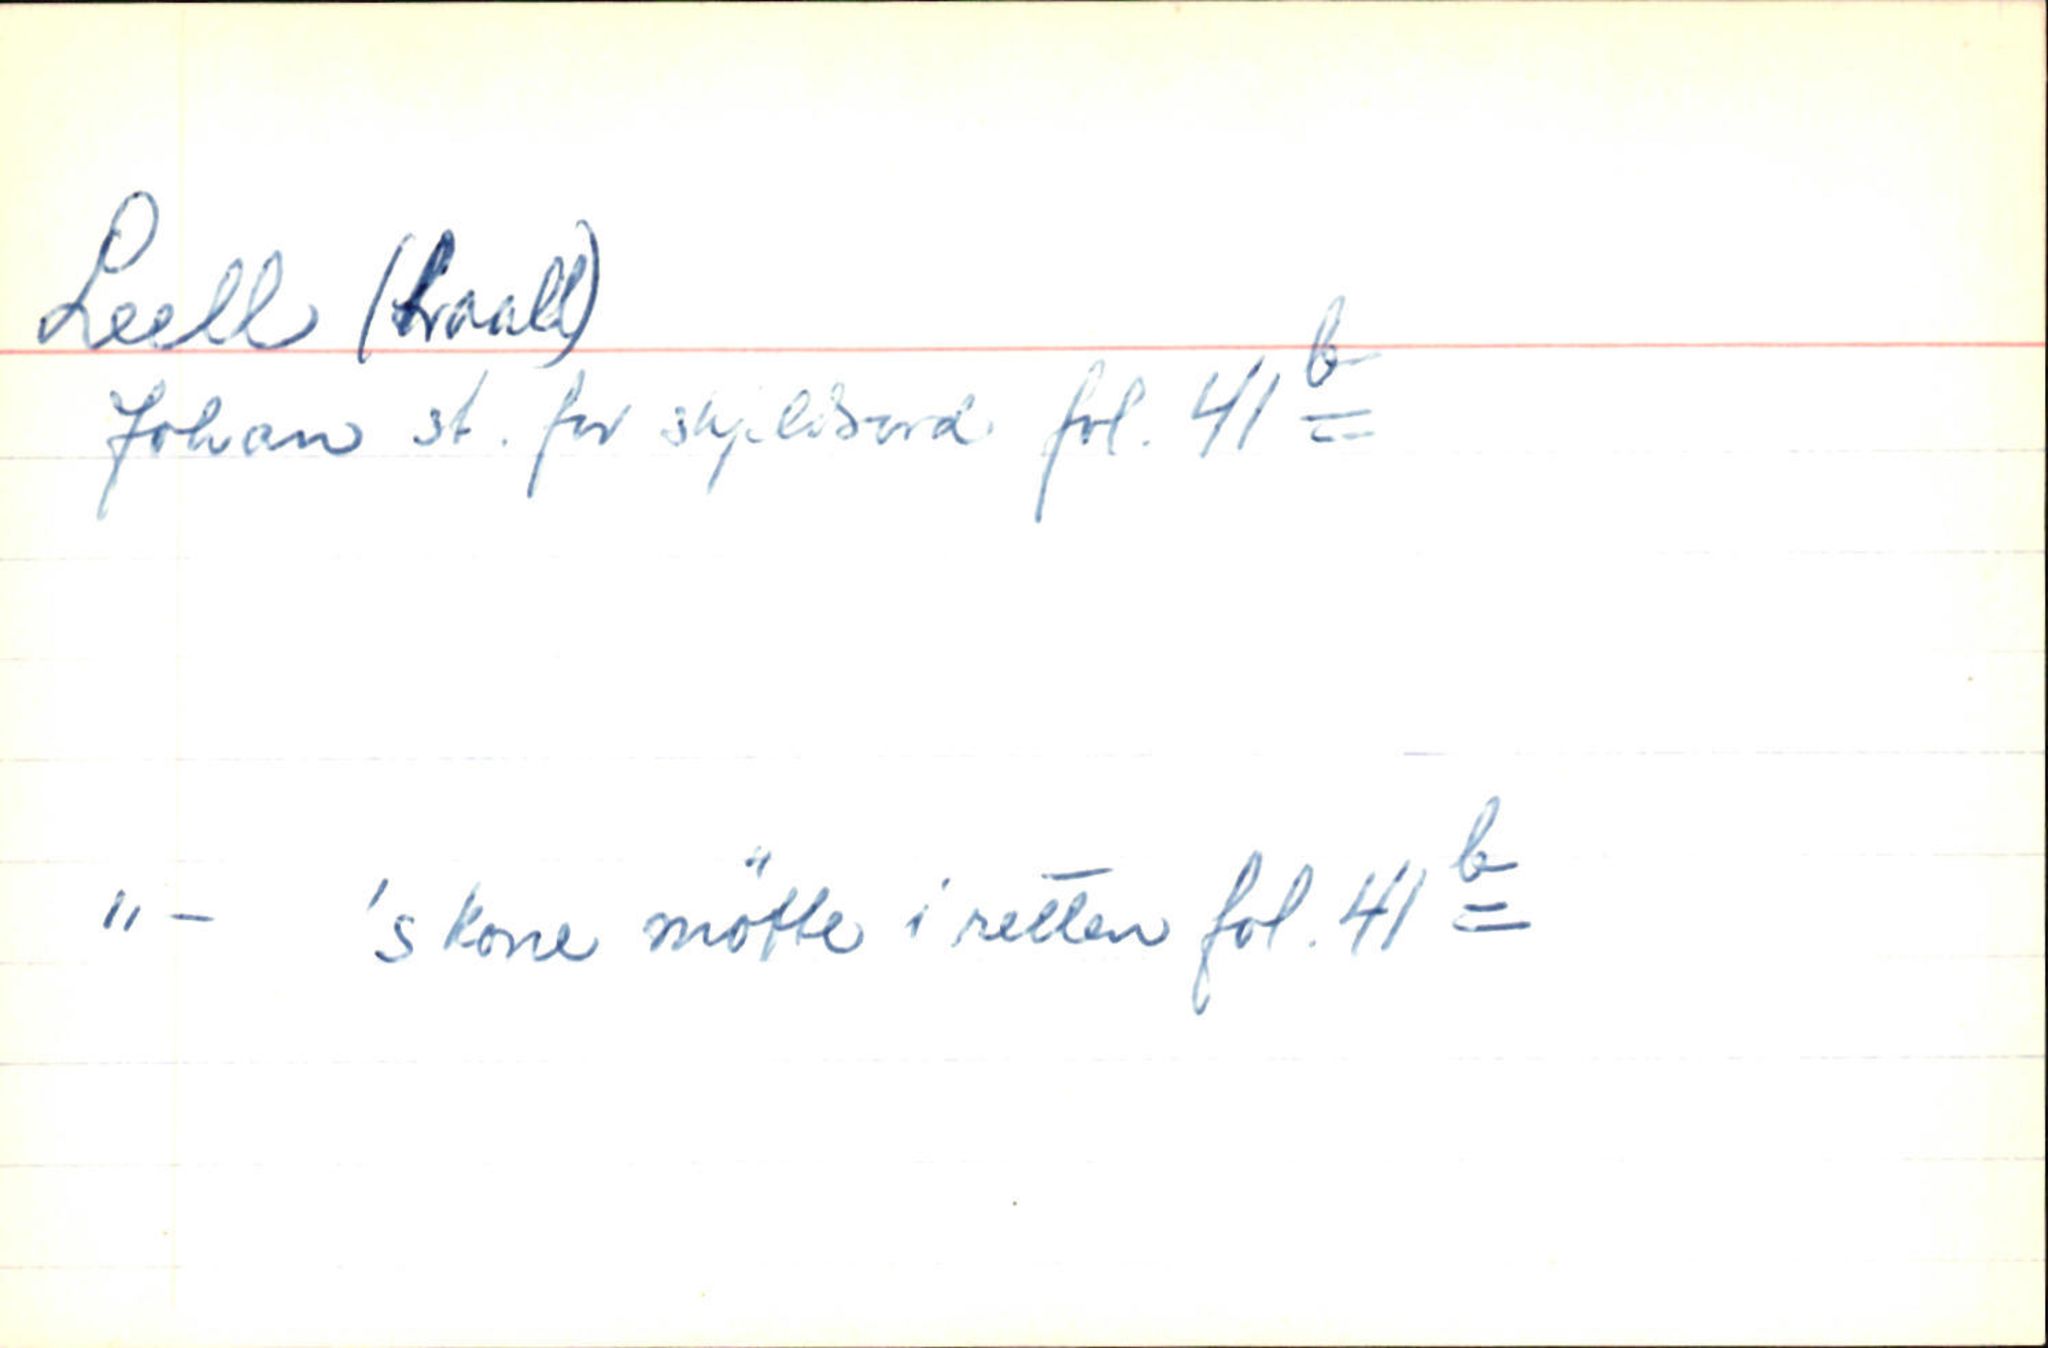 Leell (Lraall)
Johan st. for skjeldsord fol. 41 b
" - 's kone mötte i retten fol. 41 b